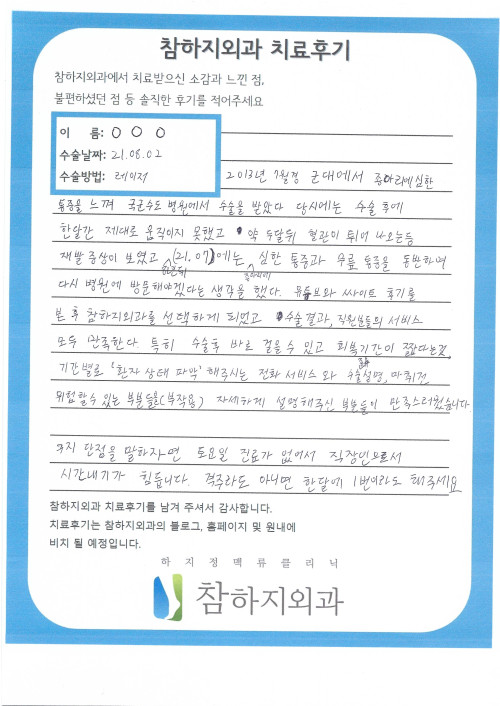 참하지외과 치료후기
참하지외과에서 치료받으신 소감과 느낀 점,
불편하셨던 점 등 솔직한 후기를 적어주세요
이 름: O O O
수술날짜: 21.08.02
수술방법: 레이저
2013년 7월경 군대에서 종아리에 심한
통증을 느껴 국군수도 병원에서 수술을 받았다 당시에는 수술 후에
한달간 제대로 움직이지 못했고 약 수달뒤 혈관이 튀어 나오는등
재발 증상이 보였고 (21.07)에는 심한 통증과 무릎 통증을 동반하여
다시 병원에 방문해야겠다는 생각을 했다. 유튜브와 싸이트 후기를
본 후 참하지외과를 선택하게 되었고 수술결과, 직원분들의 서비스
모두 만족한다. 특히 수술후 바로 걸을 수 있고 회복기간이 짧다는것,
기간별로 '환자 상태 파악' 해주시는 전화 서비스와 수술설명, 마취전
위험할수 있는 부분들을(부작용) 자세하게 설명해주신 부분들이 만족스러웠습니다
굳이 단점을 말하자면 토요일 진료가 없어서 직장인으로서
시간내기가 힘듭니다. 격주라도 아니면 한달에 1번이라도 해주세요
참하지외과 치료후기를 남겨 주셔서 감사합니다.
치료후기는 참하지외과의 블로그, 홈페이지 및 원내에
비치 될 예정입니다.
하지정맥류클리닉
참하지외과